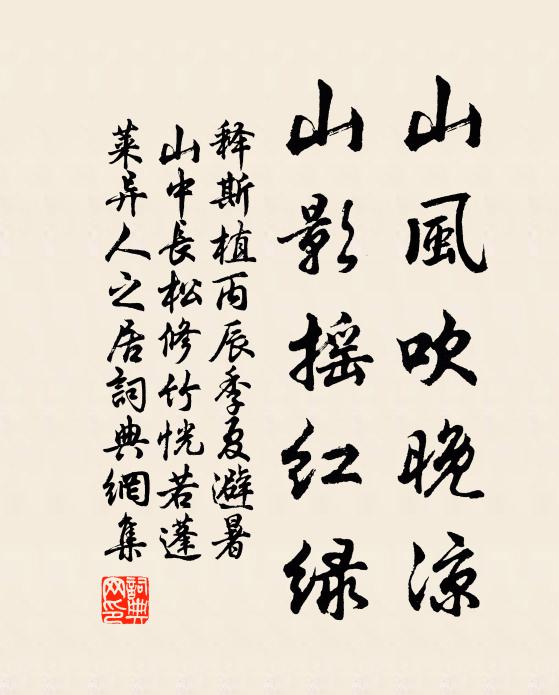 山風吹晚涼
山影摇红绿
释斯植丙辰季夏避暑
山中長松修竹恍若蓬
莱异人之居詞典網集
詞典
网印